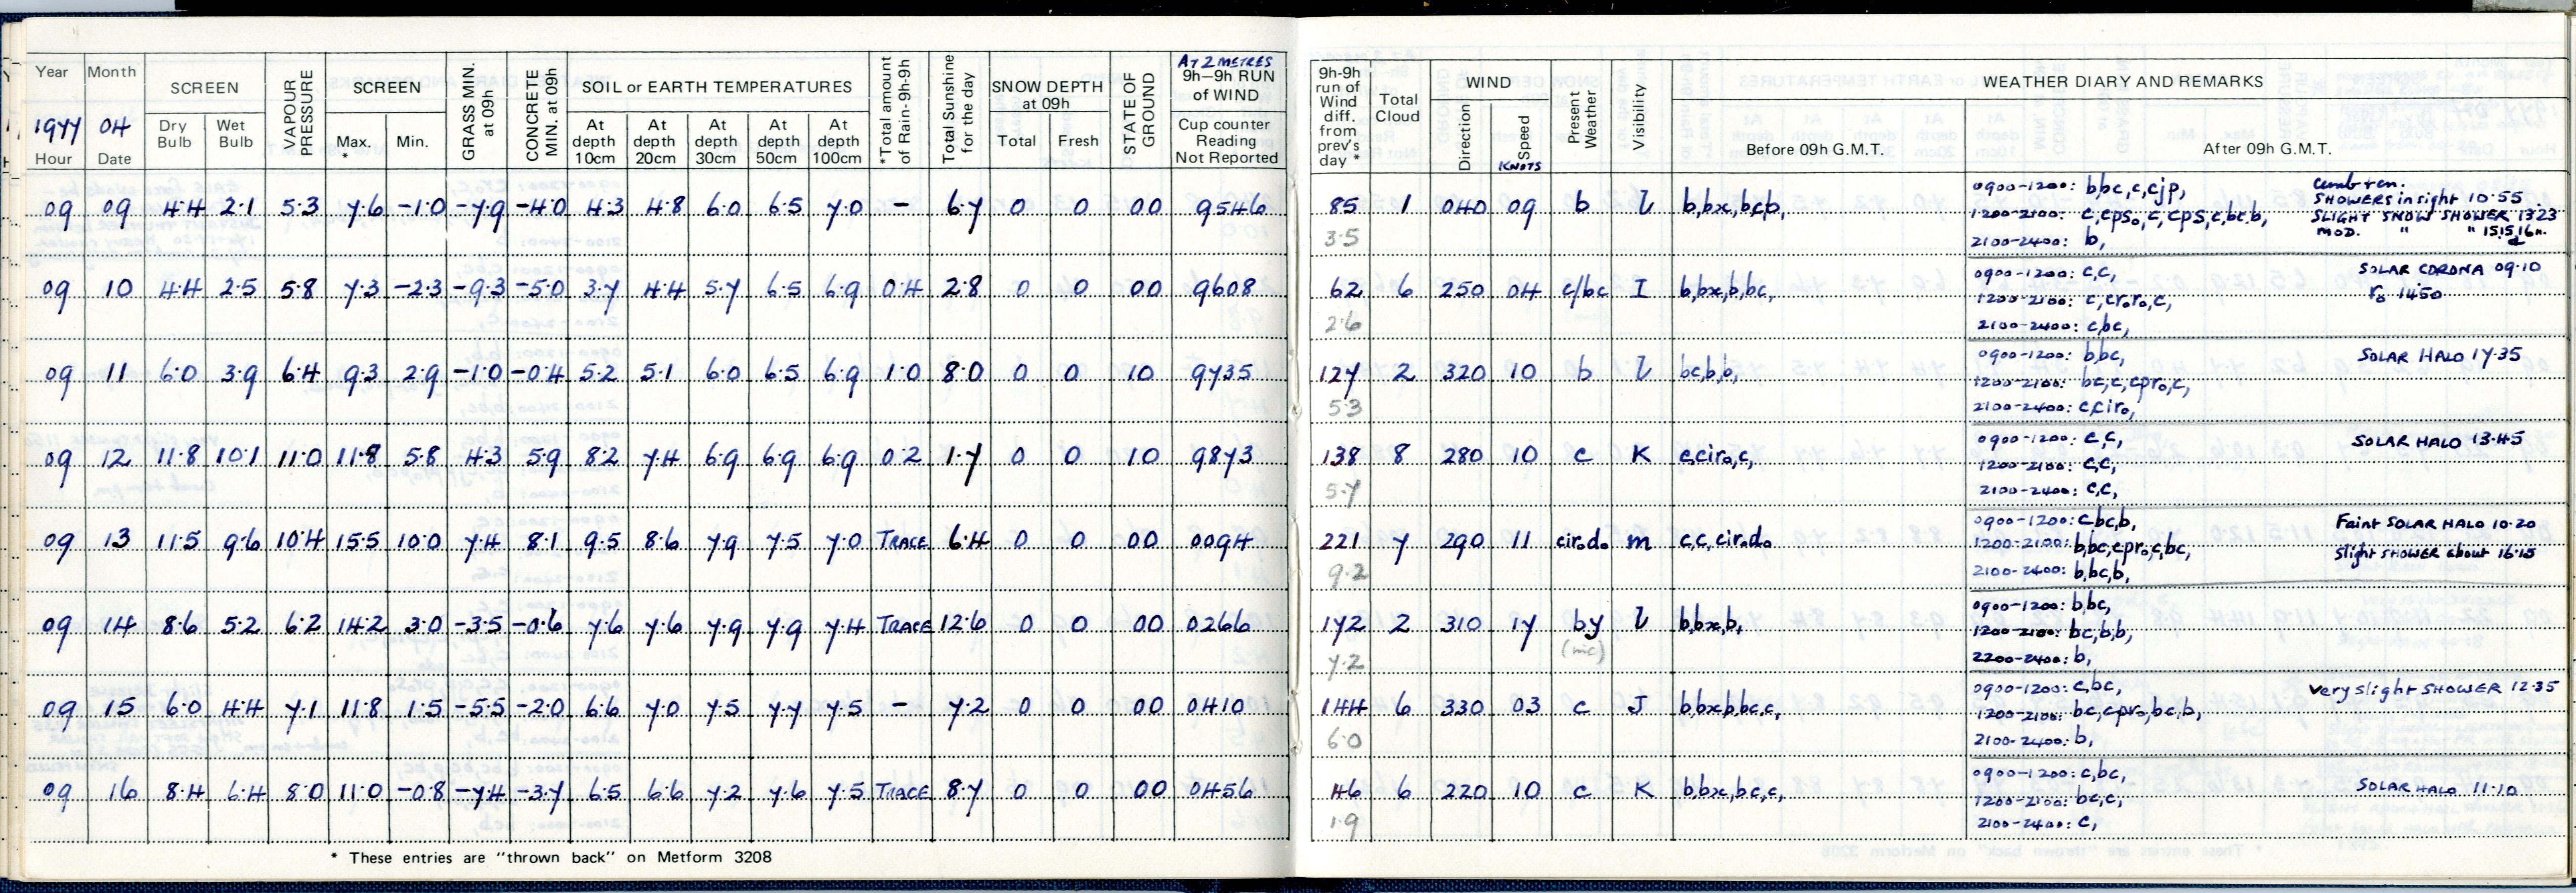 Year Month SCREEN VAPOUR PRESSURE SCREEN GRASS MIN. at 09h CONCRETE MIN. at 09h SOIL or EARTH TEMPERATURES *Total amount of Rain 9h-9h Total Sunshine for the day SNOW DEPTH at 09h STATE OF GROUND AT 2 METRES 9h–9h RUN of WIND
1977 04 Dry Bulb Wet Bulb Max. * Min. At depth 10cm At depth 20cm At depth 30cm At depth 50cm At depth 100cm Total Fresh Cup counter Reading Not Reported
Hour Date
09 09 4.4 2.1 5.3 7.6 -1.0 -7.9 -4.0 4.3 4.8 6.0 6.5 7.0 - 6.7 0 0 00 9546
09 10 4.4 2.5 5.8 7.3 -2.3 -9.3 -5.0 3.7 4.4 5.7 6.5 6.9 0.4 2.8 0 0 00 9608
09 11 6.0 3.9 6.4 9.3 2.9 -1.0 -0.4 5.2 5.1 6.0 6.5 6.9 1.0 8.0 0 0 10 9735
09 12 11.8 10.1 11.0 11.8 5.8 4.3 5.9 8.2 7.4 6.9 6.9 6.9 0.2 1.7 0 0 10 9873
09 13 11.5 9.6 10.4 15.5 10.0 7.4 8.1 9.5 8.6 7.9 7.5 7.0 TRACE 6.4 0 0 00 0094
09 14 8.6 5.2 6.2 14.2 3.0 -3.5 -0.6 7.6 7.6 7.9 7.9 7.4 TRACE 12.6 0 0 00 0266
09 15 6.0 4.4 7.1 11.8 1.5 -5.5 -2.0 6.6 7.0 7.5 7.7 7.5 - 7.2 0 0 00 0410
09 16 8.4 6.4 8.0 11.0 -0.8 -7.4 -3.7 6.5 6.6 7.2 7.6 7.5 TRACE 8.7 0 0 00 0456
* These entries are "thrown back" on Metform 3208
9h-9h run of Wind diff. from prev's day * Total Cloud WIND Present Weather Visibility WEATHER DIARY AND REMARKS
Direction Speed KNOTS Before 09h G.M.T. After 09h G.M.T.
85 1 040 09 b l b,bx,bcb, 0900-1200: bbc,c,cjp, SHOWERS in sight 10.55
3.5 1200-2100: c,cps₀,c,cps,c,bc,b, SLIGHT SNOW SHOWER 1323
2100-2400: b, MOD. " "
62 6 250 04 c/bc I b,bx,b,bc, 0900-1200: c,c, SOLAR CORONA 09.10
2.6 1200-2100: c,cr₀r₀,c, r₀ 1450
2100-2400: c,bc,
127 2 320 10 b l bc,b,b, 0900-1200: b,bc, SOLAR HALO 17.35
5.3 1200-2100: bc,c,cpr₀,c,
2100-2400: c,cir₀,
138 8 280 10 c K c,cir₀,c, 0900-1200: c,c, SOLAR HALO 13.45
5.7 1200-2100: c,c,
2100-2400: c,c,
221 7 290 11 cir₀d₀ m c,c,cir₀d₀ 0900-1200: c,bc,b, Faint SOLAR HALO 10.20
9.2 1200-2100: b,bc,cpr₀,c,bc, Slight SHOWER about 16.15
2100-2400: b,bc,b,
172 2 310 17 by l b,bx,b, 0900-1200: b,bc,
7.2 1200-2100: bc,b,b,
2200-2400: b,
144 6 330 03 c J b,bx,b,bc,c, 0900-1200: c,bc, Very slight SHOWER 12.35
6.0 1200-2100: bc,cpr₀,bc,b,
2100-2400: b,
46 6 220 10 c K b,bx,bc,c, 0900-1200: c,bc, SOLAR HALO 11.10
1.9 1200-2100: bc,c,
2100-2400: c,